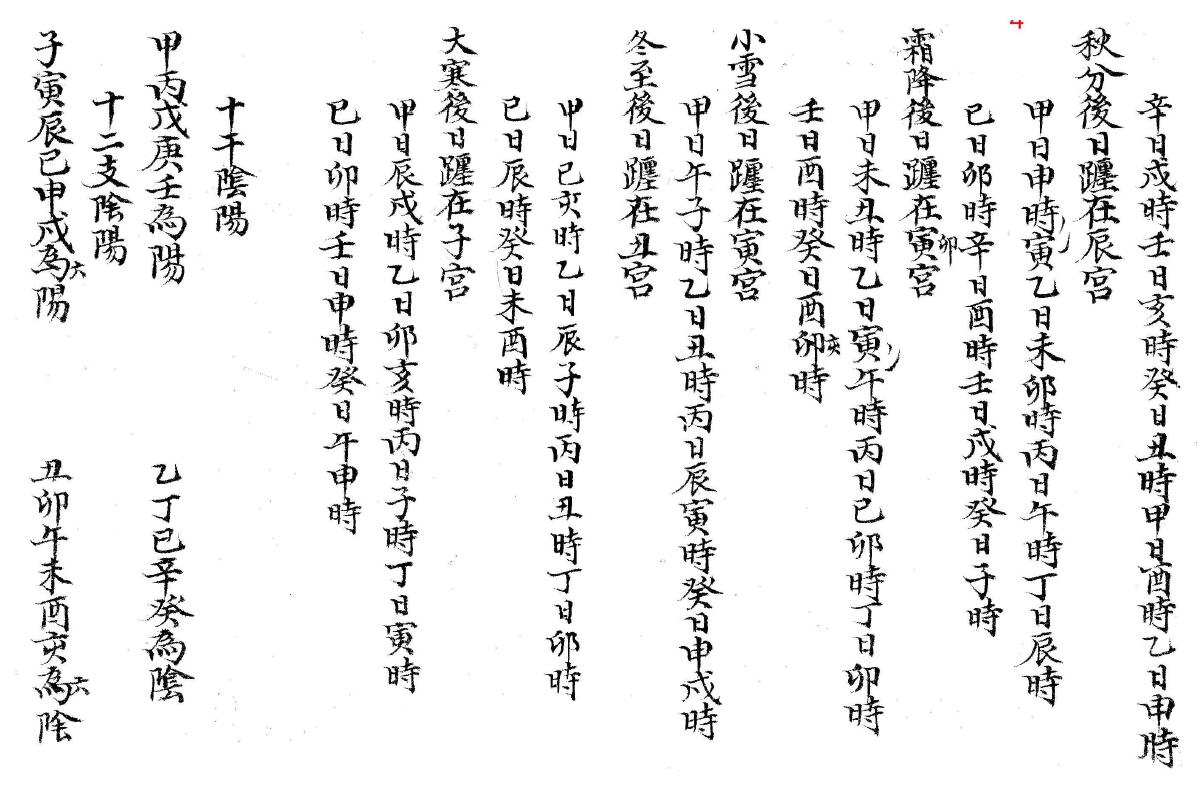 辛日戌時壬日亥時癸日丑時甲日酉時乙日申時
秋分後日躔在辰宮
甲日申時寅乙日未卯時丙日午時丁日辰時
己日卯時辛日酉時壬日戌時癸日子時
霜降後日躔在寅卯宮
甲日未丑時乙日寅午時丙日巳卯時丁日卯時
壬日酉時癸日酉卯亥時
小雪後日躔在寅宮
甲日午子時乙日丑時丙日辰寅時癸日申戌時
冬至後日躔在丑宮
甲日巳亥時乙日辰子時丙日丑時丁日卯時
己日辰時癸日未酉時
大寒後日躔在子宮
甲日辰戌時乙日卯亥時丙日子時丁日寅時
己日卯時壬日申時癸日午申時
十干陰陽
甲丙戊庚壬為陽 乙丁己辛癸為陰
十二支陰陽
子寅辰巳申戌為六陽 丑卯午未酉亥為六陰
4